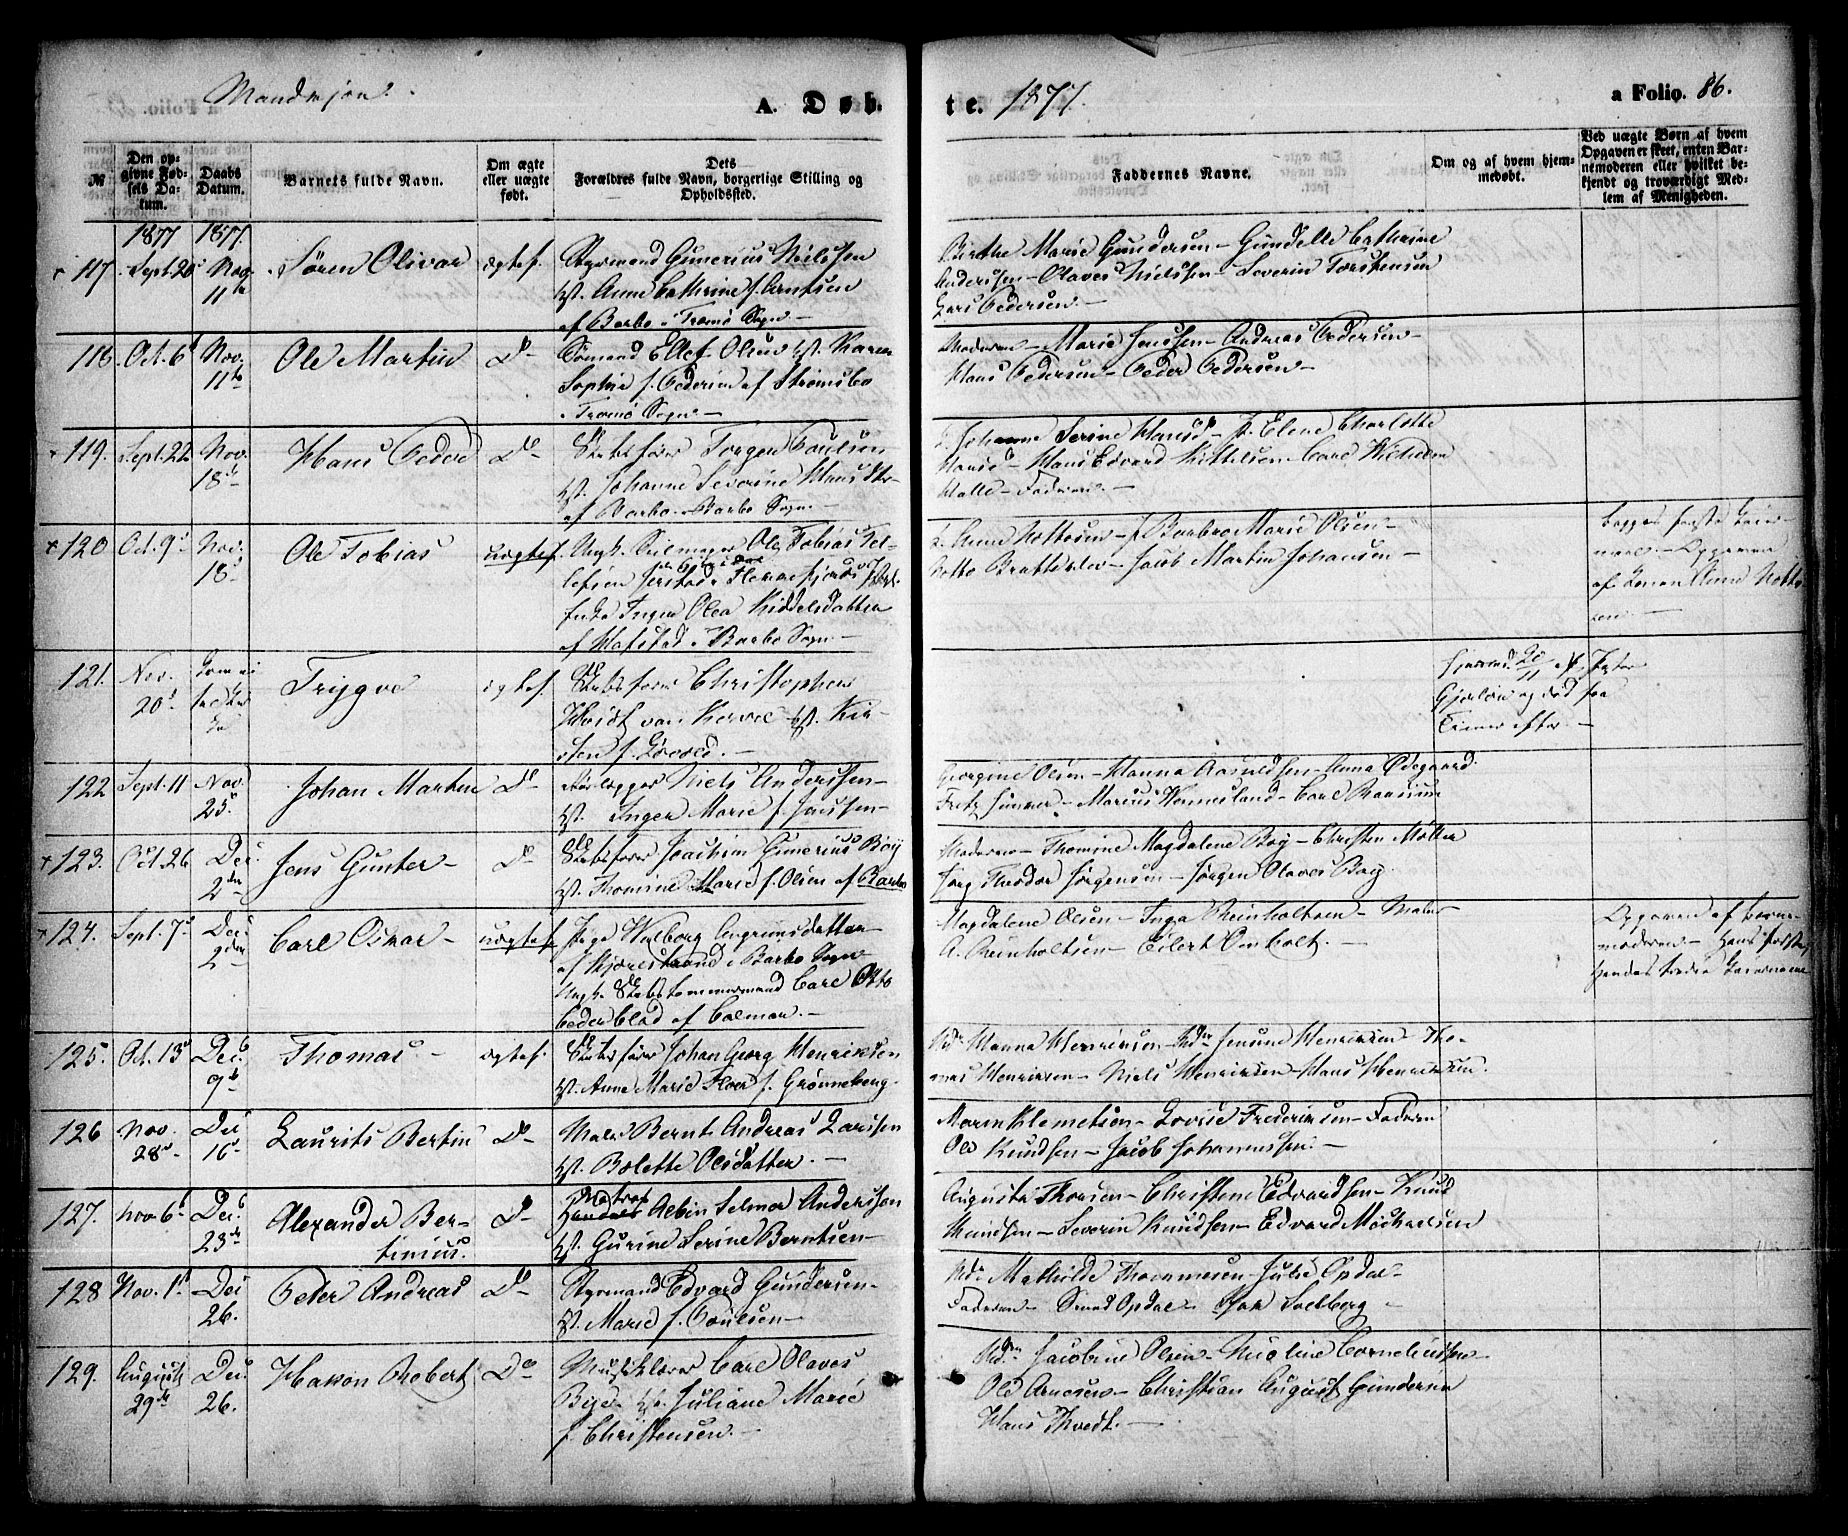 Mandkjøn.
A. Døb
te. 1877.
a Folio. 86.
№
Den op-
givne Fød-
sels Da-
tum.
Daabs
Datum.
Barnets fulde Navn.
Om ægte
eller uægte
født.
Dets
Forældres fulde Navn, borgerlige Stilling og
Opholdssted.
Faddernes Navne.
Om og af hvem hjem-
medøbt.
Ved uægte Børn af hvem
Opgaven er skeet, enten Bar-
nemoderen eller hvilket be-
kjendt og troværdigt Med-
lem af Menigheden.
1877 1877.
117. Sept. 20 Nov. 11te Søren Olivar ægtef.
Styrmand Gunerius Nielssen
Hst. Anne Cathrine f. Arntsen
af Barbo i Tromø Sogn.
Birthe Marie Gundersen – Gundelle Cathrine
Anderssen – Olaves Nielssen – Severin Torstensen
Lars Pedersen –
118. Oct. 6 Nov. 11te Ole Martin Do
Sømand Ellef Olsen Hst. Karen
Sophie f. Pedersen af Strømsbo
i Tromø Sogn –
Moderen – Marie Jenssen – Andreas Pedersen –
Hans Pedersen – Peder Pedersen –
119. Sept. 22 Nov. 18d Hans Peder Do
Skibsfører Torger Poulsen
Hst. Johanne Severine Hansdtr
af Barbo – Barbo Sogn –
Johanne Serine Hansd – f. Elene Charlotte
Hansd – Hans Edvard Kittelsen – Carl Wilhelm
Halle – Faderen. –
120 Oct. 9d Nov. 18d Ole Tobias uægtef.
Ungk. Seilmager Ole Tobias Tel-
lefsen Jerstad i Flekkefjord
Inger Olea Kiddelsdatter
af Hafstad i Barbo Sogn –
Anne Nottosen – f. Barbro Marie Olsen –
Notto Bratteklev – Jacob Martin Johansen –
begges første Leier-
maal – Opgaven
af Konen Anne Notto
sen –
121. Nov. 20d Trygve ægtef.
Skibsfører Christopher
Hvidt van Kervel Hst. Kir-
sten f. Løvold. –
Hjemmed. 20/11 af
og død
efter –
122 Sept. 11 Nov. 25d Johan Martin Do
Niels Anderssen –
Hst. Inger Marie f. Jenssen –
Georgine Olsen – Hanna Aanedsen – Anna Ødegaard
Fritz – Marius Wennesland – Carl
123. Oct. 26 Dec. 2den Jens Gunter – Do
Skibsfører Joachim Gunerius Boy
Hst. Thomine Marie f. Olsen af Barbo
Moderen – Thomine Magdalene Boy – Christen Møller
Jørg. Theodor Jørgensen – Jørgen Olaves Boy
124. Sept. 7d Dec. 2den Carl Oskar – uægtef.
Pige Walborg Angrimsdatter
af Kjærestrand i Barbo Sogn
Ungk. Skibstømmermand Carl Otto
Cederblad af Calmar. –
Magdalene Olsen – Inga Reinholtsen – Maler
A. Reinholtsen – Eilert Omholt. –
Opgaven af Barne-
moderen – Hans første,
Hendes tredie Leiermaal
125. Oct. 13d Dec. 9de Thomas – ægtef.
Skibsfører Johan Georg Henriksen
Hst. Anne Marie Floer f. Grønneberg
Md: Hanna Henriksen – Jensine Henriksen – Tho-
mas Henriksen – Niels Henriksen – Hans Henriksen.
126 Nov. 28d Dec 16d Laurits Bertin Do
Maler Bernt Andreas Larssen
Hst. Bolette Olsdatter. –
Maren Klemetsen – Lovise Frederiksen – Faderen
Ole Knudsen – Jacob Johannessen –
127. Nov 6d Dec. 23de Alexander Ber-
tinius. Do
Matros Albin Selmer Anderssen
Hst. Gurine Serine Berntsen –
Auguste Thorsen – Christene Edvardsen – Knud
Knudsen – Severin Knudsen – Edvard Michaelsen
128 Nov. 1d Dec 26. Peter Andreas Do
Styrmand Edvard Gundersen –
Hst. Marie f. Poulsen –
Md: Mathilde Thommesen – Julie Opdal –
Faderen – Opdal – Solberg –
129. August 29de Dec 26. Hakon Robert Do
Musiklærer Carl Olaves
Bye – Hst. Juliane Marie
f. Christensen. –
Jacobine Olsen – Nicoline Corneliussen
Ole Arnesen – Christian August Gundersen
Hans Tvedt. –